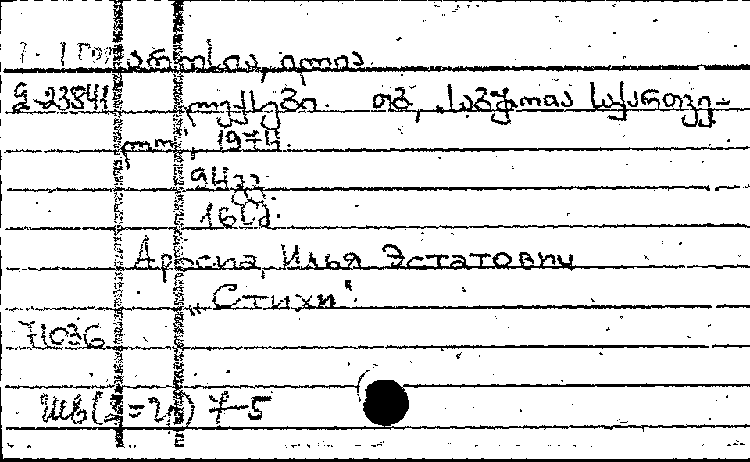 აროსია, ილია
2-23841 ლექსები. თბ., „საბჭოთა საქართვე-
ლო", 1974.
94გვ.
16სმ.
Аросиа, Илья Эстатович
„Стихи".
71036
7-5